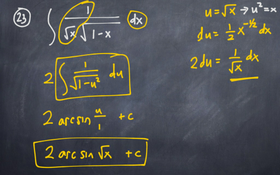 23 ∫ 1/(√x √(1-x)) dx
u = √x → u² = x
du = 1/2 x^(-1/2) dx
2du = 1/√x dx
2 ∫ 1/√(1-u²) du
2 arcsin u/1 + c
2 arcsin √x + c